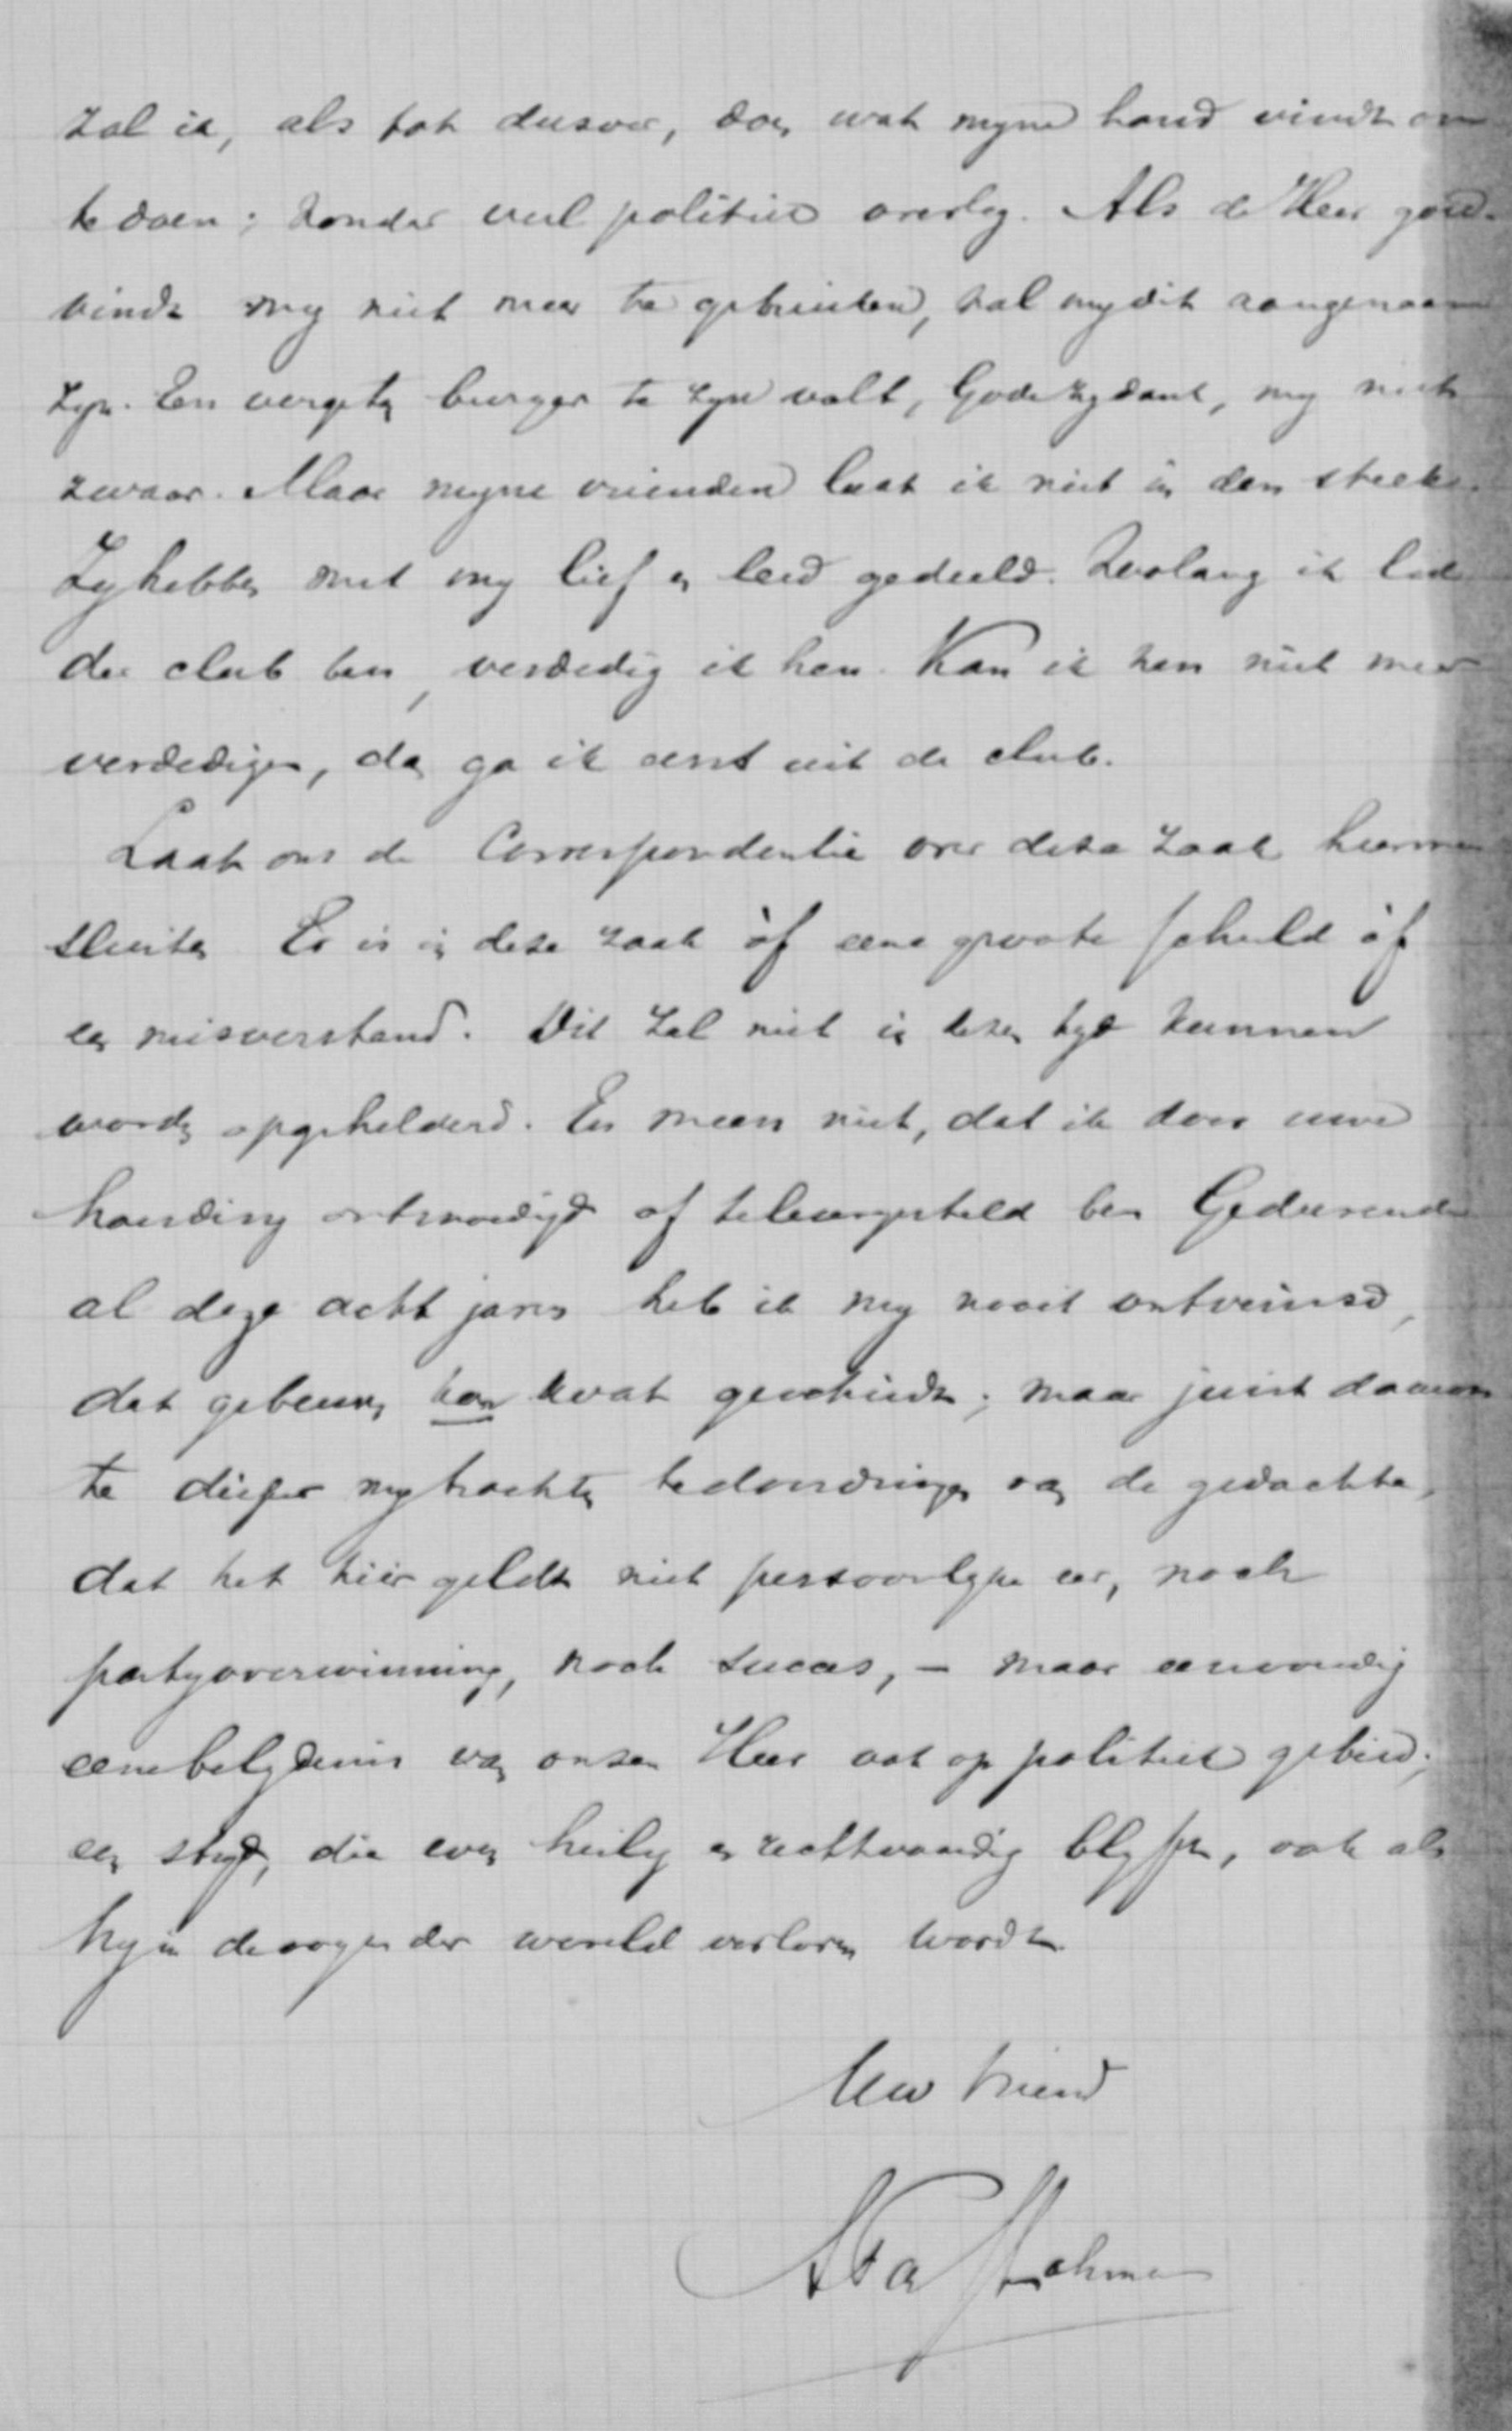 zal ik, als tot dusver, doen wat myne hand vindt om
te doen; zonder veel politiek overleg. Als de Heer goed-
vindt my niet meer te gebruiken, zal my dit aangenaam
zyn. Een vergeten burger te zyn valt, Gode zy dank, my niet
zwaar. Maar myne vrienden laat ik niet in den steek.
Zy hebben met my lief en leed gedeeld. Zoolang ik lid
der club ben, verdedig ik hen. Kan ik hen niet meer
verdedigen, dan ga ik eerst uit de club.
Laat ons de Correspondentie over deze zaak hiermee
sluiten Er is in deze zaak òf eene groote schuld òf
een misverstand. Dit zal niet in dezen tyd kunnen
worden opgehelderd. En meen niet, dat ik door uwe
houding ontmoedigd of teleurgesteld ben Gedurende
al deze acht jaren heb ik my nooit ontveinsd,
dat gebeuren kon wat geschiedt; maar juist daarom
te dieper my trachten te doordringen van de gedachte,
dat het hier geldt niet persoonlyke eer, noch
partyoverwinning, noch succes, – maar eenvoudig
eene belydenis van onzen Heer ook op politiek gebied;
een stryd, die even heilig en rechtvaardig blyft, ook als
hy in de oogen der wereld verloren wordt.
Uw vriend
AFdeSLohman